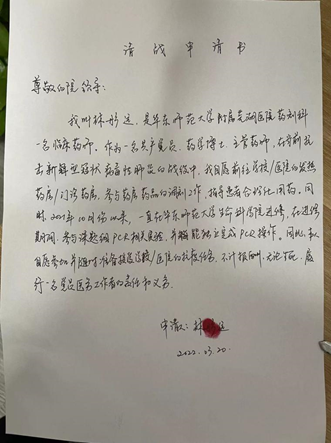 请战申请书
尊敬的院领导：
我叫林彤远，是华东师范大学附属芜湖医院药剂科
一名临床药师。作为一名共产党员、药学博士、主管药师，在当前抗
击新冠型冠状病毒性肺炎的战役中，我自愿前往学校/医院的发热
药房/门诊药房，参与药房药品的调剂工作，指导患者合理化用药。同
时，2021年10月份以来，一直在华东师范大学生命科学院进修，在进修
期间，参与课题组PCR相关实验，并能独立完成PCR操作。因此，本人
自愿参加并随时准备接受学校/医院的抗疫任务，不计报酬，无论生死，履
行一名党员医务工作者的责任和义务。
申请人：林
2022.03.20.